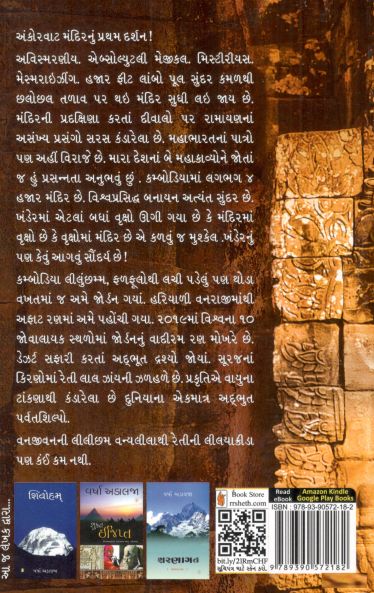 અંકોરવાટ મંદિરનું પ્રથમ દર્શન!
અવિસ્મરણીય. એબ્સોલ્યુટલી મેજીકલ. મિસ્ટીરીયસ.
મેસ્મરાઇઝીંગ. હજાર ફીટ લાંબો પૂલ સુંદર કમળથી
છલોછલ તળાવ પર થઇ મંદિર સુધી લઇ જાય છે.
મંદિરની પ્રદક્ષિણા કરતાં દીવાલો પર રામાયણનાં
અસંખ્ય પ્રસંગો સરસ કંડારેલા છે. મહાભારતનાં પાત્રો
પણ અહીં વિરાજે છે. મારા દેશનાં બે મહાકાવ્યોને જોતાં
જ હું પ્રસન્નતા અનુભવું છું . કમ્બોડિયામાં લગભગ ૪
હજાર મંદિર છે. વિશ્વપ્રસિદ્ધ બનાયન અત્યંત સુંદર છે.
ખંડેરમાં એટલાં બધાં વૃક્ષો ઊગી ગયા છે કે મંદિરમાં
વૃક્ષો છે કે વૃક્ષોમાં મંદિર છે એ કળવું જ મુશ્કેલ .ખંડેરનું
પણ કેવું આગવું સૌંદર્ય છે!
કમ્બોડિયા લીલુંછમ્મ, ફળફૂલોથી લચી પડેલું પણ થોડા
વખતમાં જ અમે જોર્ડન ગયાં. હરિયાળી વનરાજીમાંથી
અફાટ રણમાં અમે પહોંચી ગયા. ૨૦૧૯માં વિશ્વના ૧૦
જોવાલાયક સ્થળોમાં જોર્ડનનું વાદીરમ રણ મોખરે છે.
ડેઝર્ટ સફારી કરતાં અદ્‌ભૂત દ્રશ્યો જોયાં. સૂરજનાં
કિરણોમાં રેતી લાલ ઝાંયની ઝળહળે છે. પ્રકૃતિએ વાયુના
ટાંકણાથી કંડારેલા છે દુનિયાના એકમાત્ર અદ્‌ભૂત
પર્વતશિલ્પો.
વનજીવનની લીલીછમ વન્યલીલાથી રેતીની લીલયાકીડા
પણ કંઈ કમ નથી.
આ જ લેખક દ્વારા...
શિવોહમ્
વર્ષા અડાલજા
વર્ષા અડાલજા
ઈજિપ્ત
વર્ષા અડાલજા
શરણાગત
Book Store
rrsheth.com
bit.ly/2lRmCHF
સૂચિપત્ર માટે સ્કેન કરો.
Read
eBook
Amazon Kindle
Google Play Books
ISBN : 978-93-90572-18-2
9 789390 572182